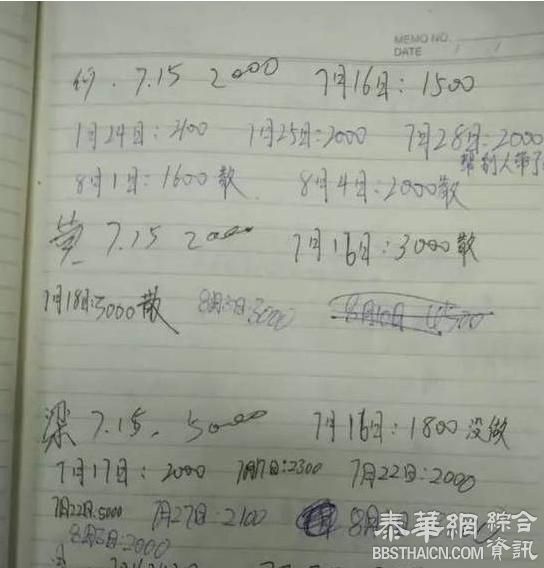 MEMO NO.
DATE / /
7.15 2000 7月16日：1500
7月24日：2100 7月25日：2000 7月28日：2000
帮别人带了
8月1日：1600散 8月4日：2000散
黄 7.15 2000 7月16日：3000散
7月18日：5000散 8月3日：3000 8月10日 4500
梁 7.15. 5000 7月16日：1800 没做
7月17日：2000 7月17日：2300 7月22日：2000
7月22日：5000 7月27日：2100 8月
8月3日：2000
泰華網 綜合資訊
BBSTHAICN.COM